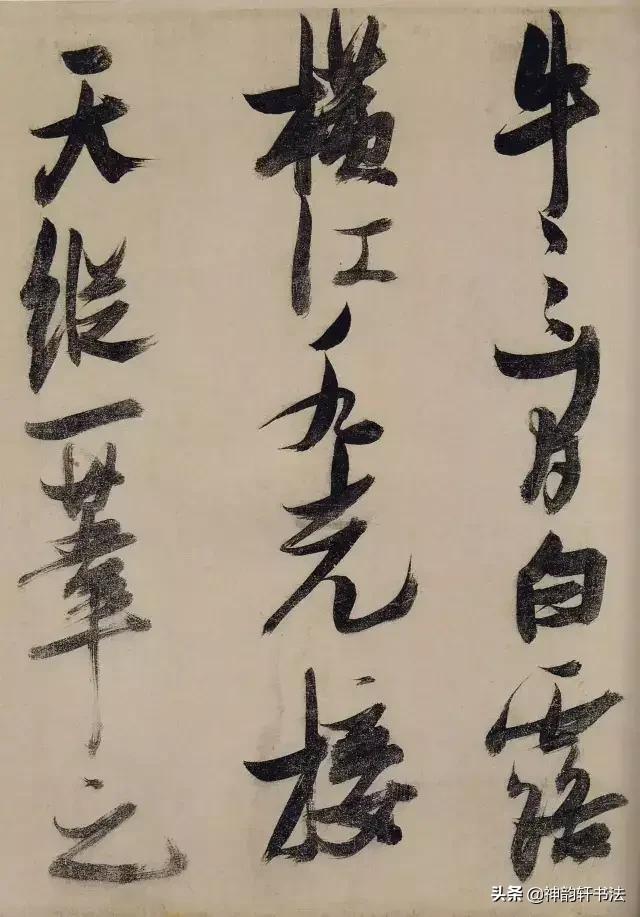 牛之間白露
橫江水光接
天縱一葦之
头条 @神韵轩书法